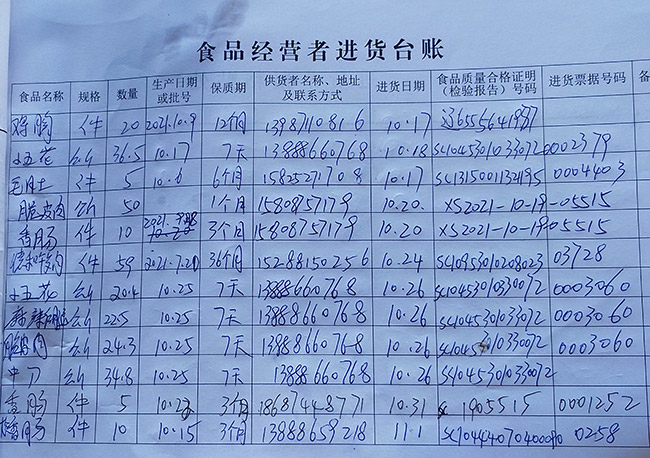 食品经营者进货台账
食品名称 规格 数量 生产日期或批号 保质期 供货者名称、地址及联系方式 进货日期 食品质量合格证明(检验报告)号码 进货票据号码 备
鸡胸 件 20 2021.10.9 12个月 13987110816 10.17
小五花 公斤 36.5 10.17 7天 13888660768 10.18 SC1045301033072 0002379
件 5 10.6 6个月 15825271708 10.17 SC1315001132495 0004403
脆皮肉 公斤 50 1个月 15808757179 10.20 XS2021-10-19-05515
香肠 件 10 3个月 15808757179 10.20 XS2021-10-19-05515
件 59 2021.7.21 36个月 15288150256 10.24 SC10953010208023 03728
小五花 公斤 20.4 10.25 7天 13888660768 10.26 SC10453010330072 0003060
公斤 22.5 10.25 7天 13888660768 10.26 SC10453010330072 0003060
公斤 24.3 10.25 7天 13888660768 10.26 0003060
公斤 34.8 10.25 7天 13888660768 10.26 SC10453010330072
香肠 件 5 3个月 18687448771 10.31 SC 1905515 0001252
香肠 件 10 10.15 3个月 13888659218 11.1 0258